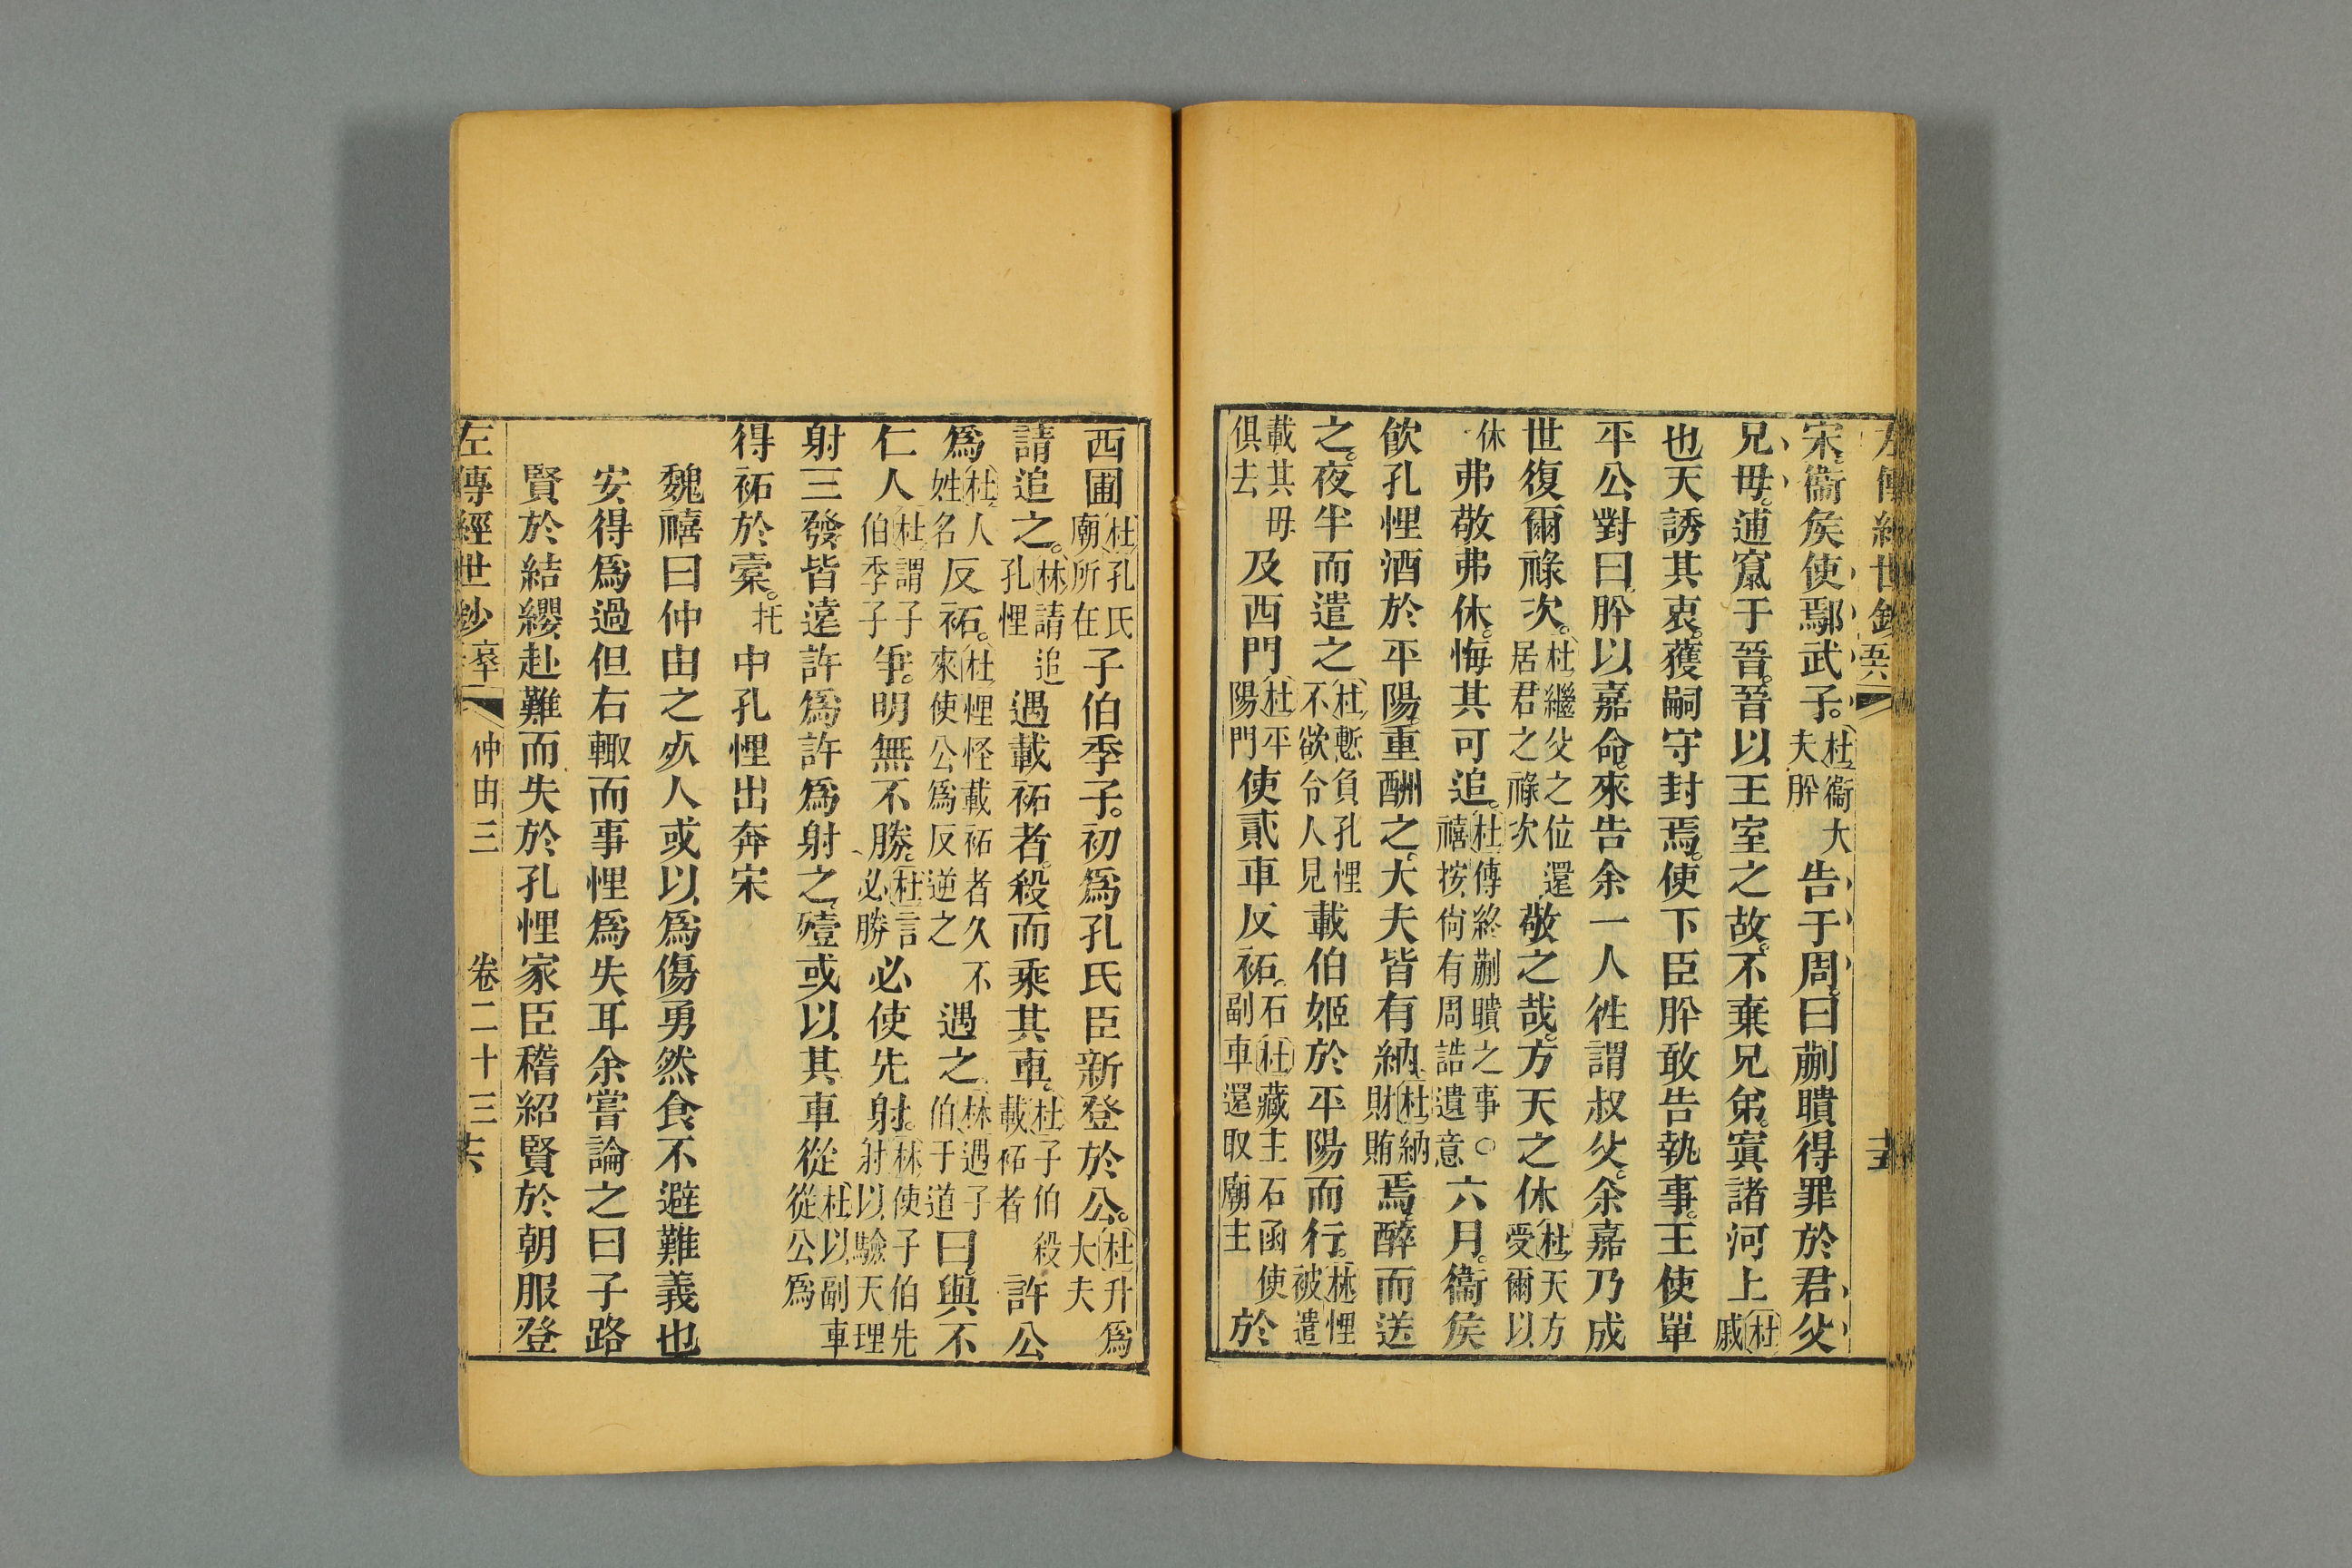 宋。衞侯使鄢武子。杜衞大夫肸告于周。曰蒯聵得罪於君父
兄毋。逋竄于晉。晉以王室之故。不棄兄弟。寘諸河上杜戚
也天誘其衷。獲嗣守封焉。使下臣肸敢告執事。王使單
平公對曰。肸以嘉命。來告余一人徃謂叔父。余嘉乃成
世復爾祿次。杜繼父之位還居君之祿次敬之哉。方天之休杜天方受爾以
休弗敬弗休。悔其可追。杜傳終蒯聵之事○禧按尙有周誥遺意六月。衞侯
飲孔悝酒於平陽。重酬之。大夫皆有納。杜納財賄焉。醉而送
之。夜半而遣之杜慙負孔悝不欲令人見載伯姬於平陽而行。林悝被遣
載其毋俱去及西門杜平陽門使貳車反祏。石副車還取廟主杜藏主石函使於
西圃杜孔氏廟所在子伯季子。初爲孔氏臣新登於公。杜升爲大夫
請追之。林請追孔悝遇載祏者。殺而乘其車。杜子伯殺載祏者許公
爲杜人姓名反祏。杜悝怪載祏者久不來使公爲反逆之遇之。林遇子伯于道曰。與不
仁人杜謂子伯季子爭。明無不勝。杜言必勝必使先射。林使子伯先射以驗天理
射三發皆遠許爲許爲射之。殪或以其車從杜以副車從公爲
得祏於槖。托中孔悝出奔宋
魏禧曰仲由之死人或以爲傷勇然食不避難義也
安得爲過但右輙而事悝爲失耳余嘗論之曰子路
賢於結纓赴難而失於孔悝家臣稽紹賢於朝服登
左傳經世鈔 仲由三 卷二十三